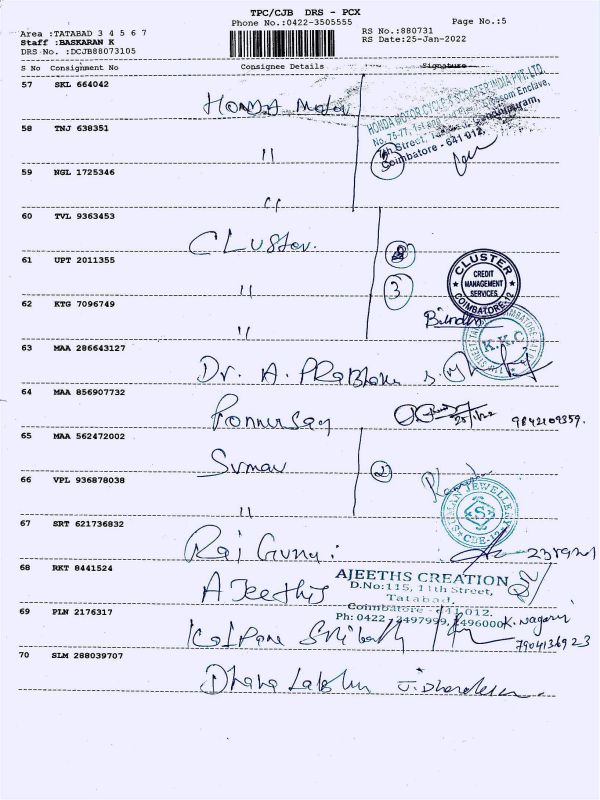 TPC/CJB DRS - PCX
Phone No.:0422-3505555
Page No.:5
Area :TATABAD 3 4 5 6 7
RS No.:880731
Staff :BASKARAN K
RS Date:25-Jan-2022
DRS No. :DCJB88073105
S No Consignment No Consignee Details Signature
57 SKL 664042
HONDA Motor
HONDA MOTOR CYCLE & SCOOTER INDIA PVT. LTD.
No. 75-77, 1st
Enclave,
Street,
Coimbatore - 641 012.
58 TNJ 638351
"
59 NGL 1725346
"
60 TVL 9363453
CLuster.
61 UPT 2011355
"
3
CLUSTER
CREDIT
MANAGEMENT
SERVICES
COIMBATORE-12
62 KTG 7096749
"
K.K.C
63 MAA 286643127
Dr. A. PRabhakar
64 MAA 856907732
Ponnusamy
25/1/22
9842109359.
65 MAA 562472002
Suman
2
66 VPL 936878038
"
SUMAN JEWELLERY
CBE-12
S
67 SRT 621736832
Raj Guru
68 RKT 8441524
AJeeths
AJEETHS CREATION
D.No:115, 11th Street,
Tatabad,
Coimbatore - 641 012.
Ph: 0422 - 2497999, 2496000
69 PLN 2176317
Kalpana
K. Nagaraj
7904136923
70 SLM 288039707
Dhana Lakshmi